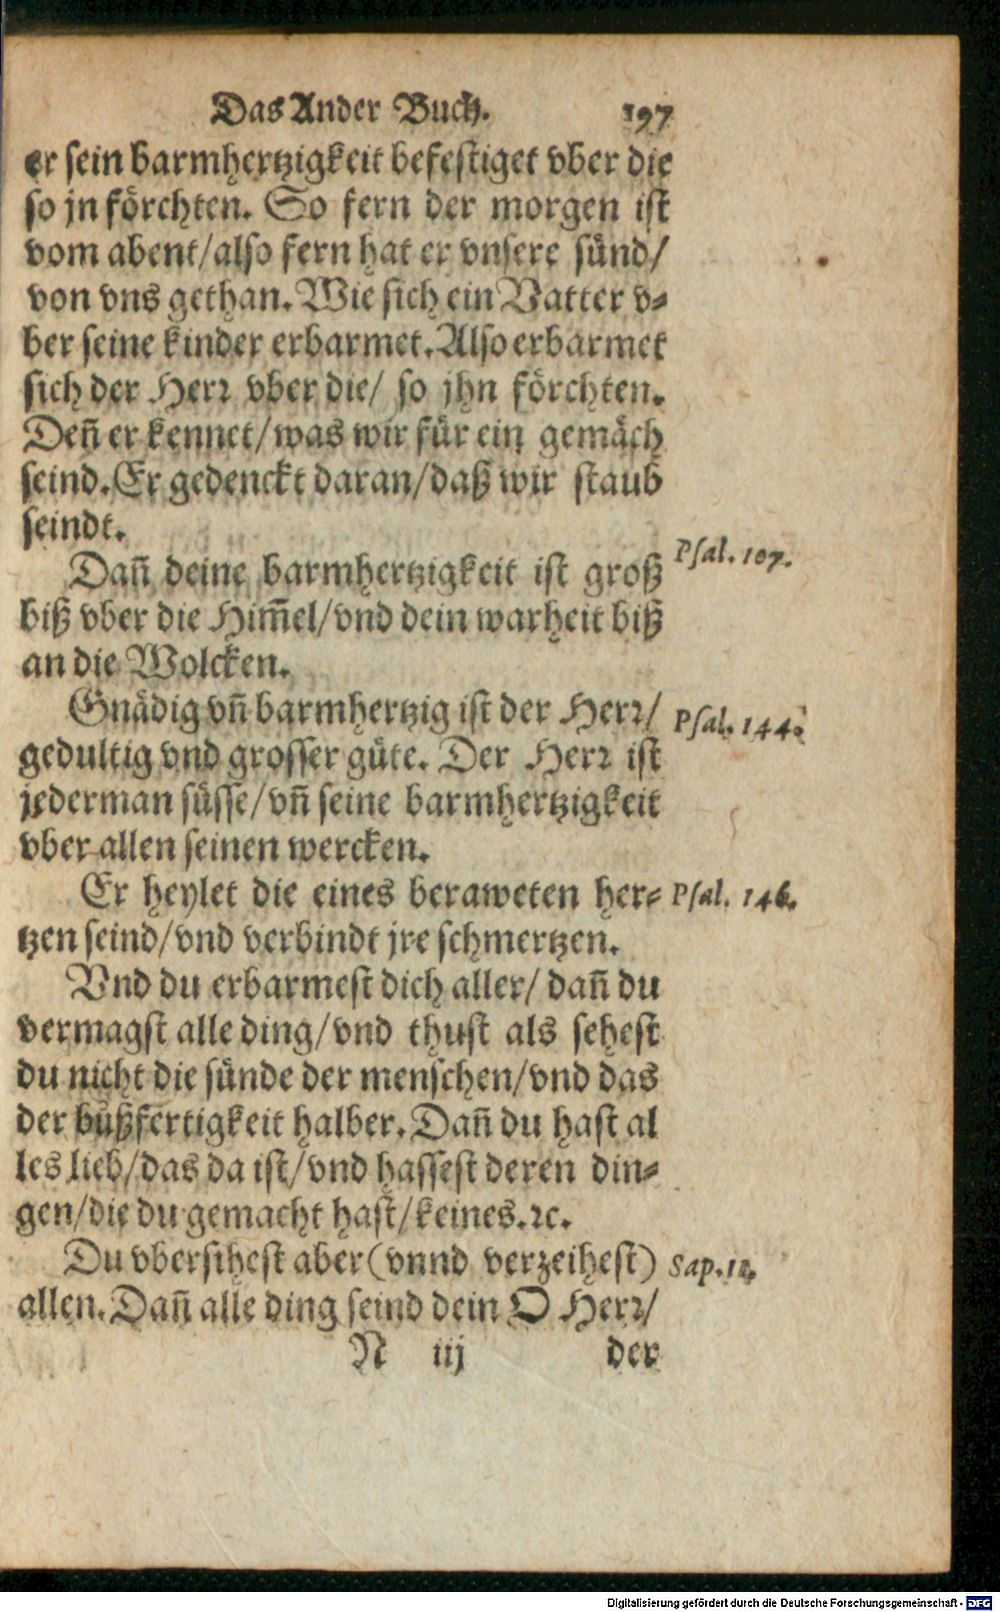 Das Ander Buch. 197
er sein barmhertzigkeit befestiget vber die
so jn förchten. So fern der morgen ist
vom abent/also fern hat er vnsere sünd/
von vns gethan. Wie sich ein Vatter v⸗
ber seine kinder erbarmet. Also erbarmet
sich der Herr vber die/ so jhn förchten.
Deñ er kennet/was wir für ein gemäch
seind. Er gedenckt daran/daß wir staub
seindt.
Dañ deine barmhertzigkeit ist groß Psal. 107.
biß vber die Him̃el/vnd dein warheit biß
an die Wolcken.
Gnädig vñ barmhertzig ist der Herr/ Psal. 144.
gedultig vnd grosser güte. Der Herr ist
jederman süsse/vñ seine barmhertzigkeit
vber allen seinen wercken.
Er heylet die eines beraweten her⸗ Psal. 146.
tzen seind/vnd verbindt jre schmertzen.
Vnd du erbarmest dich aller/ dañ du
vermagst alle ding/vnd thust als sehest
du nicht die sünde der menschen/vnd das
der bußfertigkeit halber. Dañ du hast al
les lieb/das da ist/vnd hassest deren din⸗
gen/die du gemacht hast/keines. ꝛc.
Du vbersihest aber (vnnd verzeihest) Sap.
allen. Dañ alle ding seind dein O Herr/
N iij der
Digitalisierung gefördert durch die Deutsche Forschungsgemeinschaft - DFG